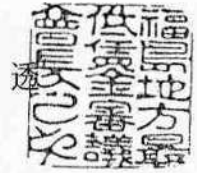 福島地方最
低賃金審議
會長之印
透